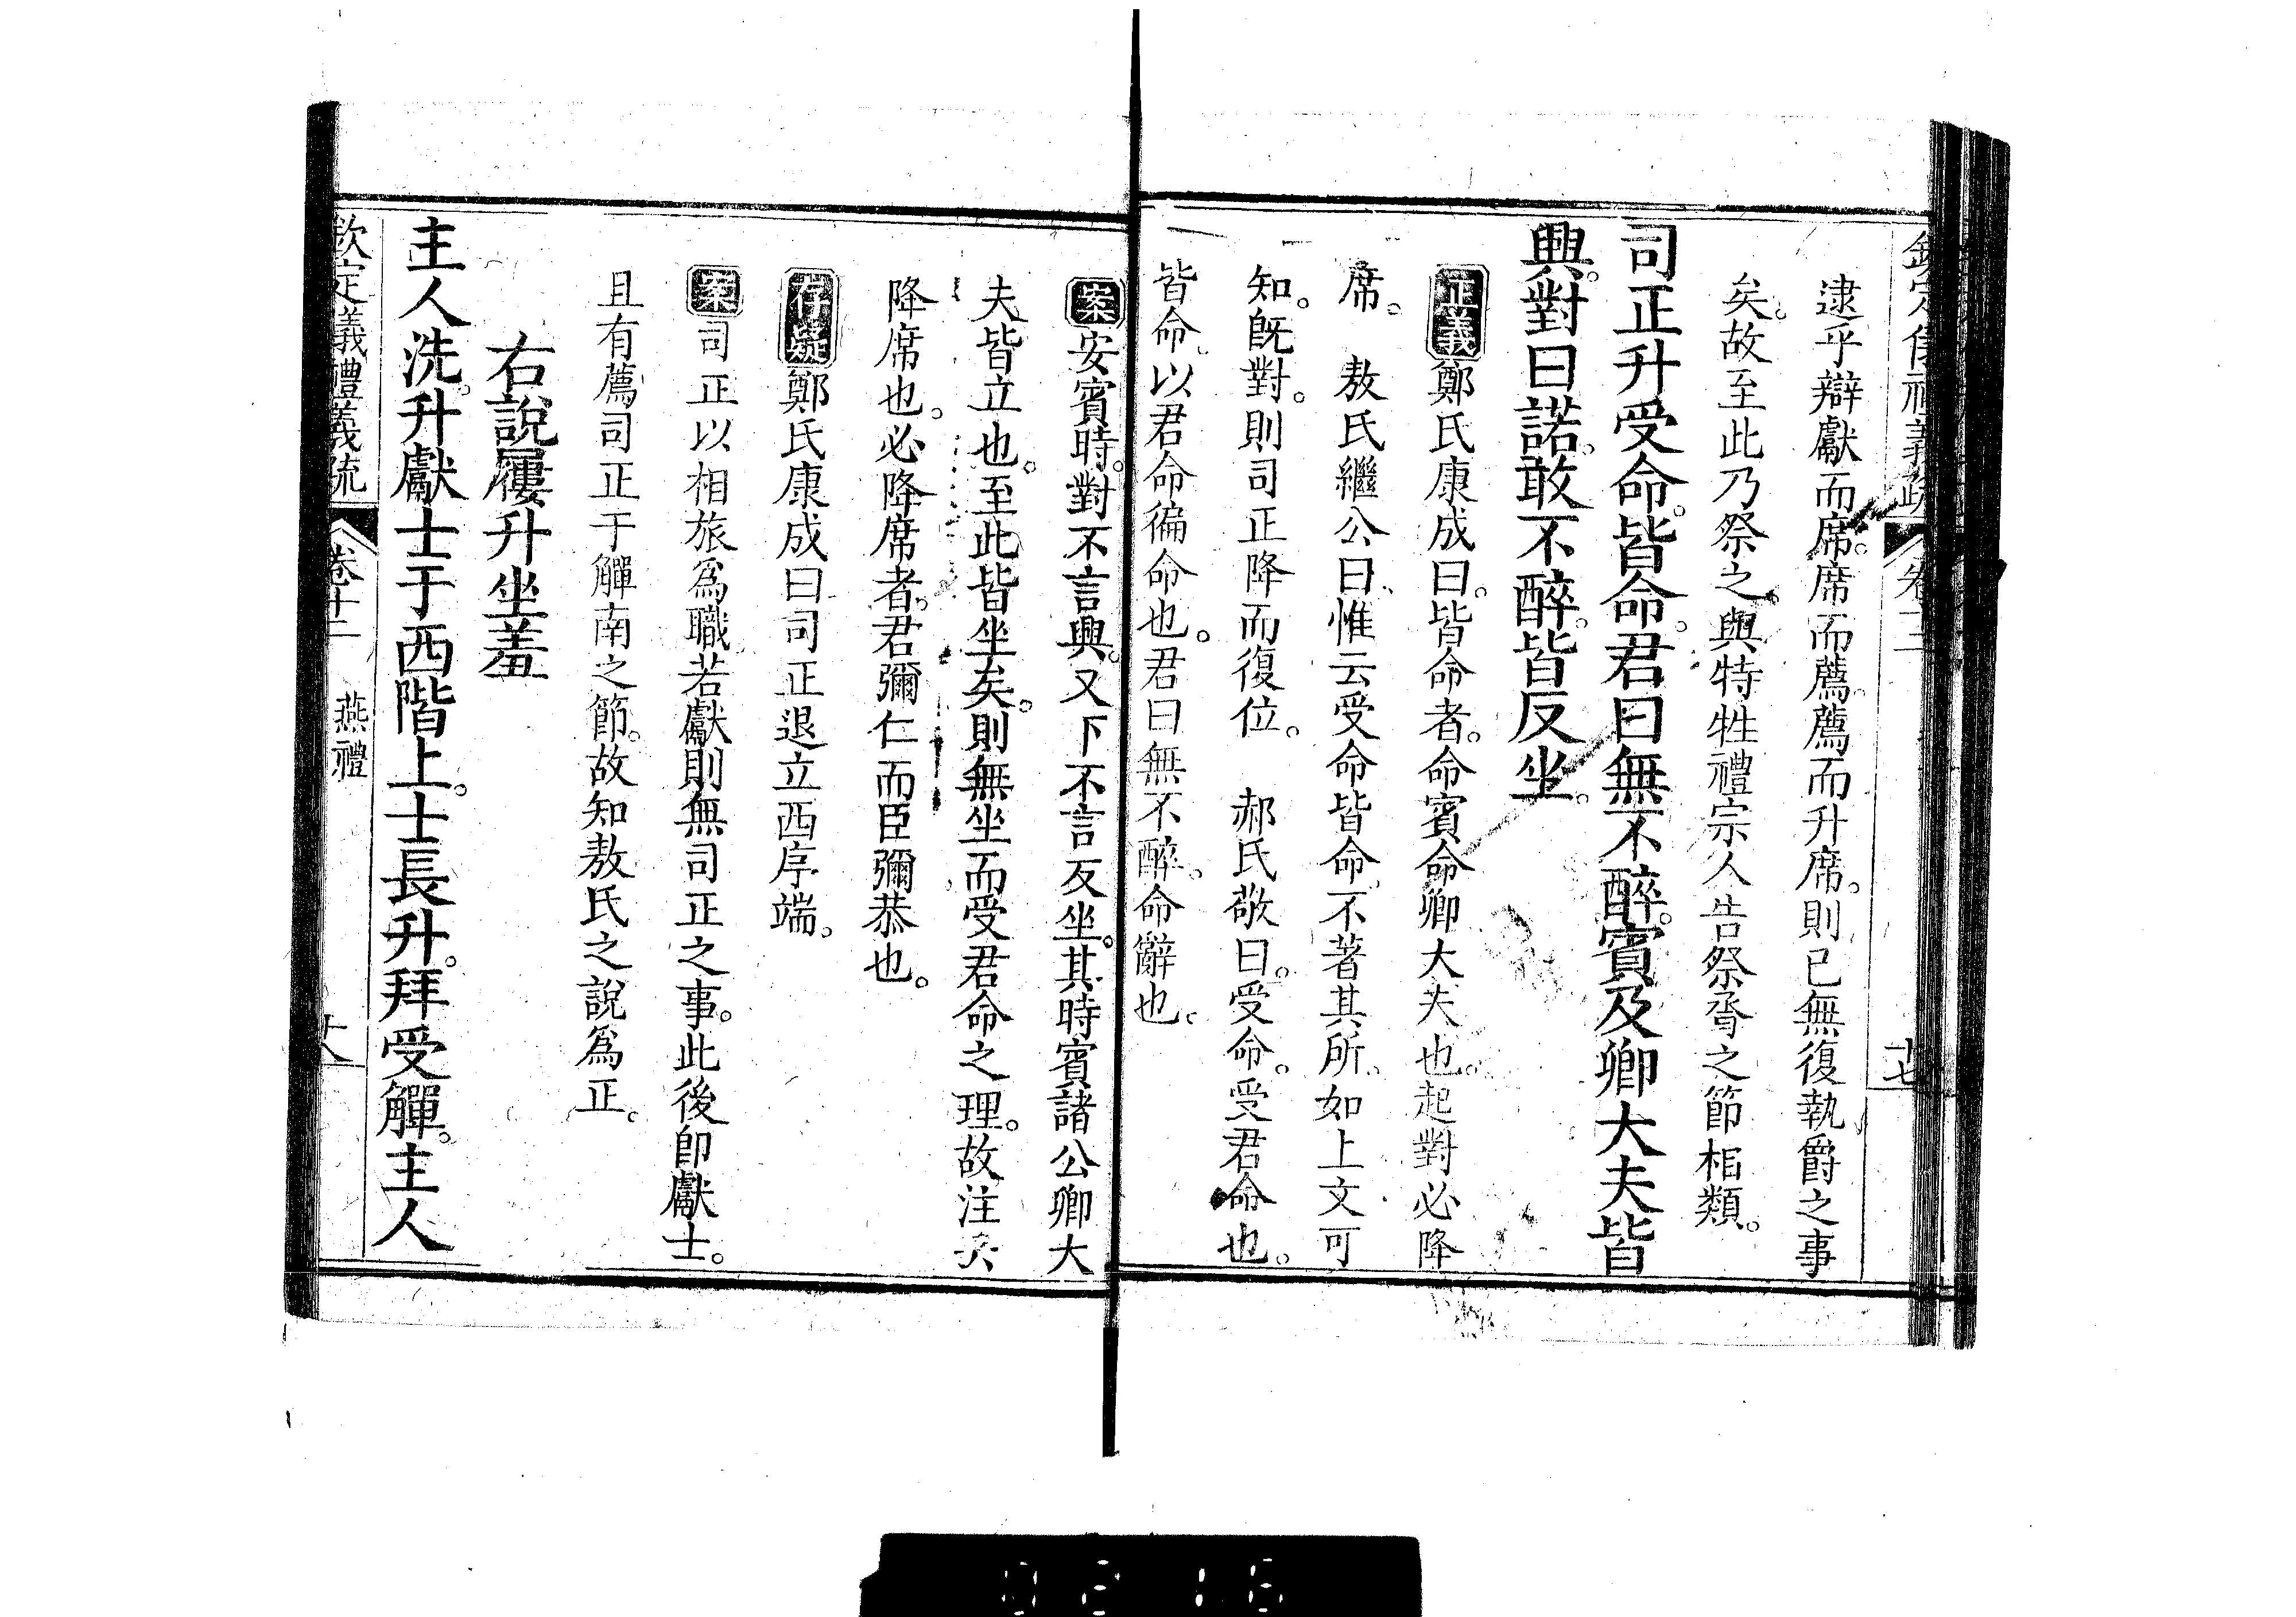 逮乎辯獻而席。席而薦。薦而升席。則已無復執爵之事
矣。故至此乃祭之。與特牲禮宗人告祭脀之節相類。
司正升受命。皆命。君曰無不醉。賓及卿大夫皆
興。對曰諾。敢不醉。皆反坐。
正義鄭氏康成曰。皆命者。命賓命卿大夫也。起對必降
席。 敖氏繼公曰。惟云受命皆命。不著其所。如上文可
知。旣對。則司正降而復位。 郝氏敬曰。受命。受君命也。
皆命。以君命徧命也。君曰無不醉。命辭也。
案安賓時。對不言興。又下不言反坐。其時賓諸公卿大
夫皆立也。至此皆坐矣。則無坐而受君命之理。故注云
降席也。必降席者。君彌仁而臣彌恭也。
存疑鄭氏康成曰司正退立西序端。
案司正以相旅爲職若獻則無司正之事。此後卽獻士。
且有薦司正于觶南之節。故知敖氏之說爲正。
右說屨升坐羞
主人洗。升獻士于西階上。士長升。拜受觶。主人
欽定義禮義疏 卷十二 燕禮 十八